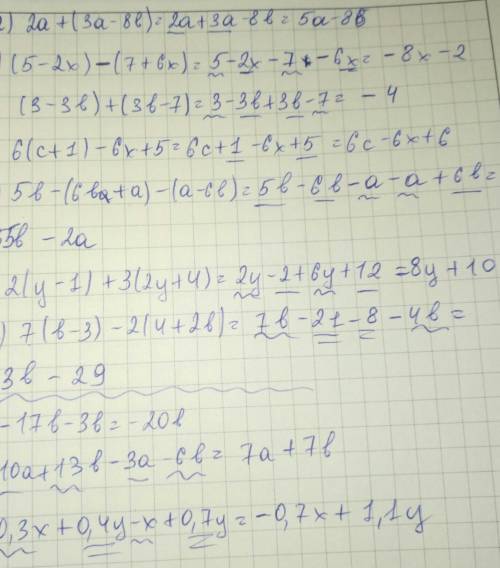 2) 2a + (3a - 8в) = 2a + 3a - 8в = 5a - 8в
) (5 - 2x) - (7 + 6x) = 5 - 2x - 7 - 6x = - 8x - 2
(3 - 3в) + (3в - 7) = 3 - 3в + 3в - 7 = - 4
6(c + 1) - 6x + 5 = 6c + 1 - 6x + 5 = 6c - 6x + 6
5в - (6в + a) - (a - 6в) = 5в - 6в - a - a + 6в =
5в - 2a
2(y - 1) + 3(2y + 4) = 2y - 2 + 6y + 12 = 8y + 10
) 7(в - 3) - 2(4 + 2в) = 7в - 21 - 8 - 4в =
3в - 29
- 17в - 3в = - 20в
10a + 13в - 3a - 6в = 7a + 7в
0,3x + 0,4y - x + 0,7y = - 0,7x + 1,1y